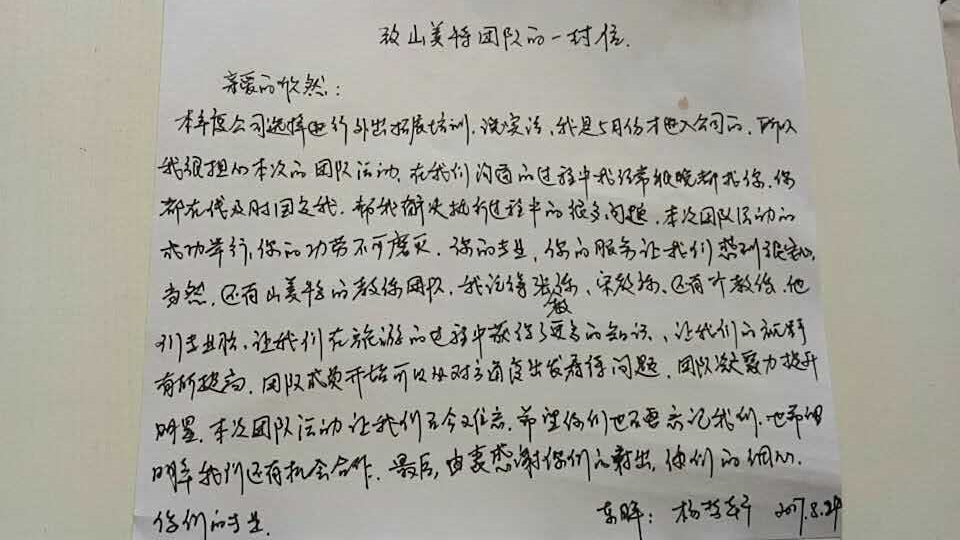 致山美特团队的一封信.
亲爱的悦然:
本年度公司选择进行外出拓展培训. 说实话, 我是5月份才进入公司的, 所以
我很担心本次的团队活动, 在我们沟通的过程中我经常很晚都找你, 你
都在线及时回复我. 帮我解决执行过程中的很多问题, 本次团队活动的
成功举行, 你的功劳不可磨灭. 你的专业, 你的服务让我们感到很安心,
当然, 还有山美特的教练团队, 我记得张教练、宋教练、还有个教练, 他
们专业性, 让我们在旅游的过程中获得了更多的知识、让我们的视野
有所提高, 团队成员开始可以从对方角度出发看待问题, 团队凝聚力提升
明显, 本次团队活动让我们至今难忘, 希望你们也不要忘记我们, 也希望
明年我们还有机会合作. 最后, 由衷感谢你们的付出, 你们的细心.
你们的专业.
东晖: 杨 2017.8.24